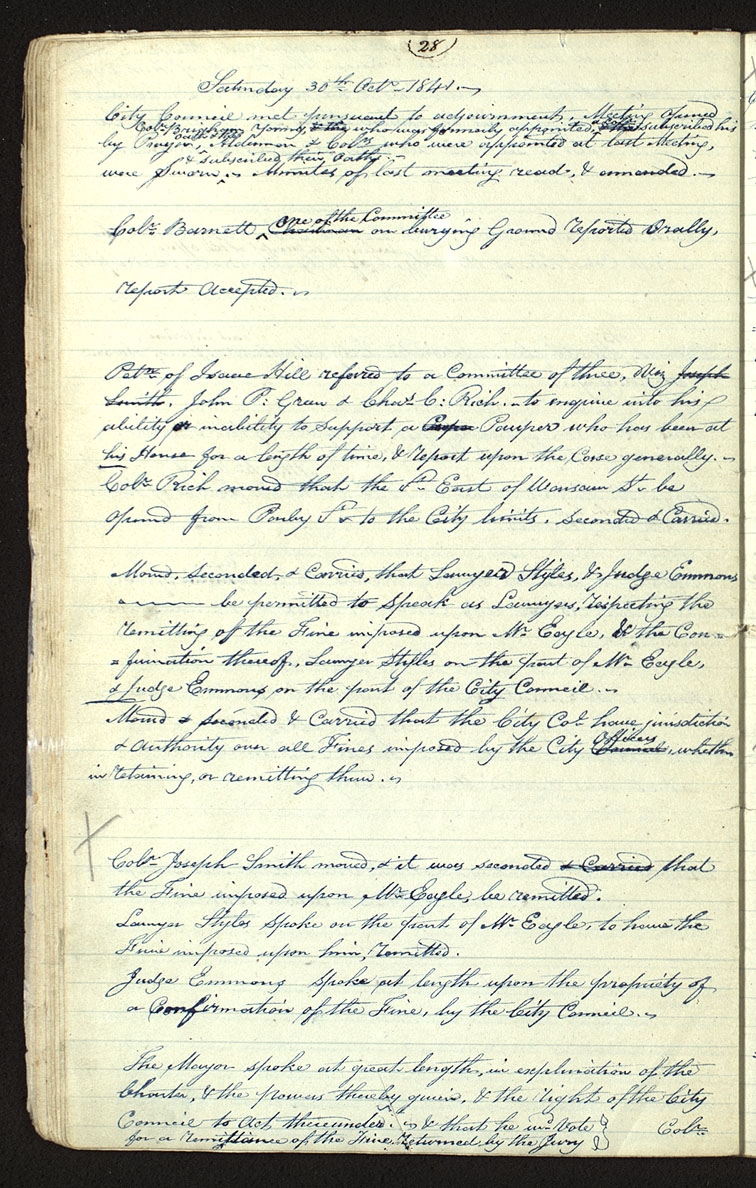 (28)
Saturday 30th Octr. 1841.
City Council met pursuant to adjournment, Meeting opened
Colr. Brigham Young, who was formerly appointed, subscribed his
by Prayer, Aldermen & Colrs. who were appointed at last Meeting,
& subscribed their Oaths.
were Sworn. Minutes of last meeting read, & amended.
Colr. Barnett, Chairman one of the Committee on burying Ground reported Orally,
report Accepted.
Petn. of Isaac Hill referred to a Committee of three, Viz Joseph
Smith, John P. Green & Chas. C. Rich. to enquire into his
ability or inability to support a Pauper who has been at
his House for a length of time, & report upon the Case generally.
Colr. Rich moved that the St. East of Warsaw St. be
opened from Parley St. to the City limits. Seconded & Carried.
Moved, Seconded, & Carried, that Lawyer Styles, & Judge Emmons
be permitted to speak as Lawyers, respecting the
remitting of the Fine imposed upon Mr. Eagle, & the Con=
=firmation thereof, Lawyer Styles on the part of Mr. Eagle,
& Judge Emmons on the part of the City Council.
Moved & seconded & Carried that the City Col. have jurisdiction
& authority over all Fines imposed by the City Council Officers, whether
in retaining, or remitting them.
Colr. Joseph Smith moved, & it was seconded & Carried that
the Fine imposed upon Mr. Eagle, be remitted.
Lawyer Styles spoke on the part of Mr. Eagle, to have the
Fine imposed upon him, remitted.
Judge Emmons spoke at length upon the propriety of
a Confirmation of the Fine, by the City Council.
The Mayor spoke at great length, in explination of the
Charter, & the powers thereby given, & the right of the City
Council to Act thereunder. & that he wd. Vote
for a Remittance of the Fine, returned by the Jury
Colr.